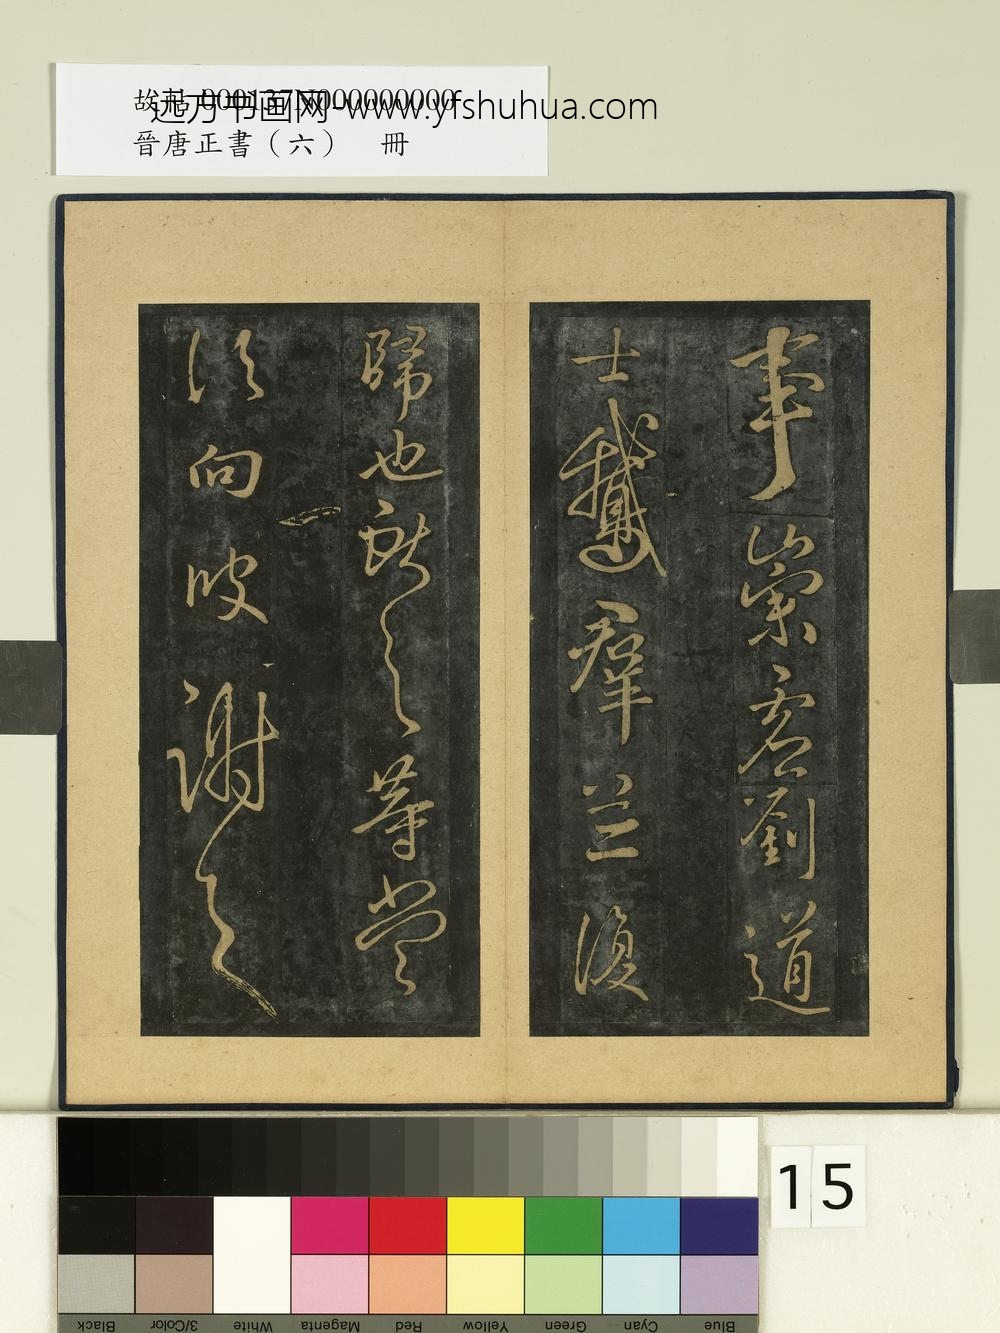 故帖000137N000000000
远方书画网-www.yfshuhua.com
晉唐正書（六）　冊
事崇虛劉道
士鵝羣並復
歸也獻之等當
須向彼謝之
15
Black
3/Color
White
Magenta
Red
Yellow
Green
Cyan
Blue